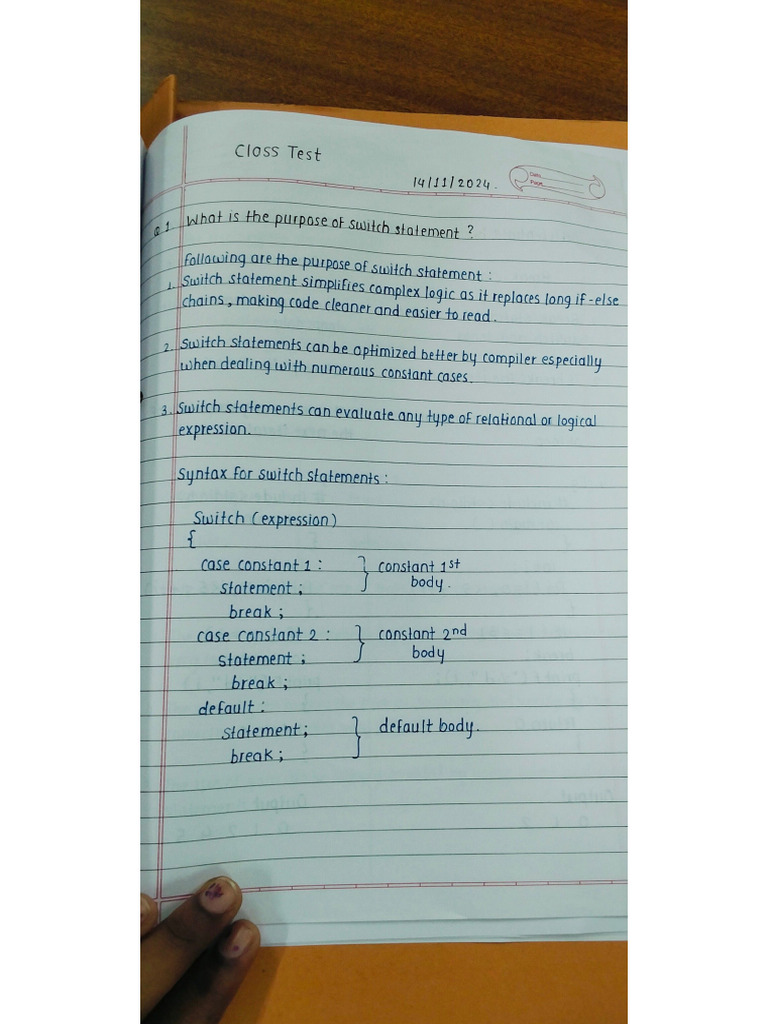 Class Test
14/11/2024.
Date
Page
Q.1. What is the purpose of switch statement ?
Following are the purpose of switch statement :
1. Switch statement simplifies complex logic as it replaces long if-else
chains, making code cleaner and easier to read.
2. Switch statements can be optimized better by compiler especially
when dealing with numerous constant cases.
3. Switch statements can evaluate any type of relational or logical
expression.
Syntax for switch statements :
Switch (expression)
{
case constant 1 : } constant 1st
statement ; body.
break ;
case constant 2 : } constant 2nd
statement ; body
break ;
default :
statement ; } default body.
break ;